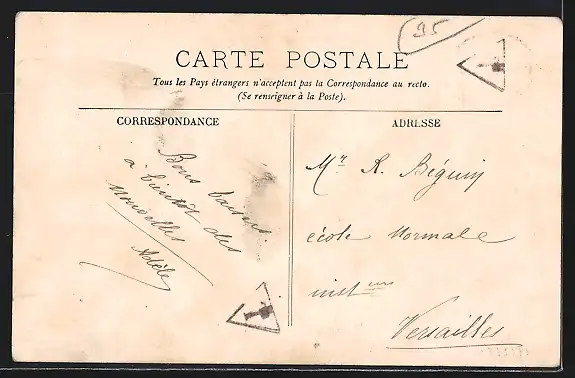 95
T
CARTE POSTALE
Tous les Pays étrangers n'acceptent pas la Correspondance au recto.
(Se renseigner à la Poste).
CORRESPONDANCE
Bons baisers
à bientôt des
nouvelles
Adèle
T
ADRESSE
Mr R. Béguin
école Normale
insteurs
Versailles